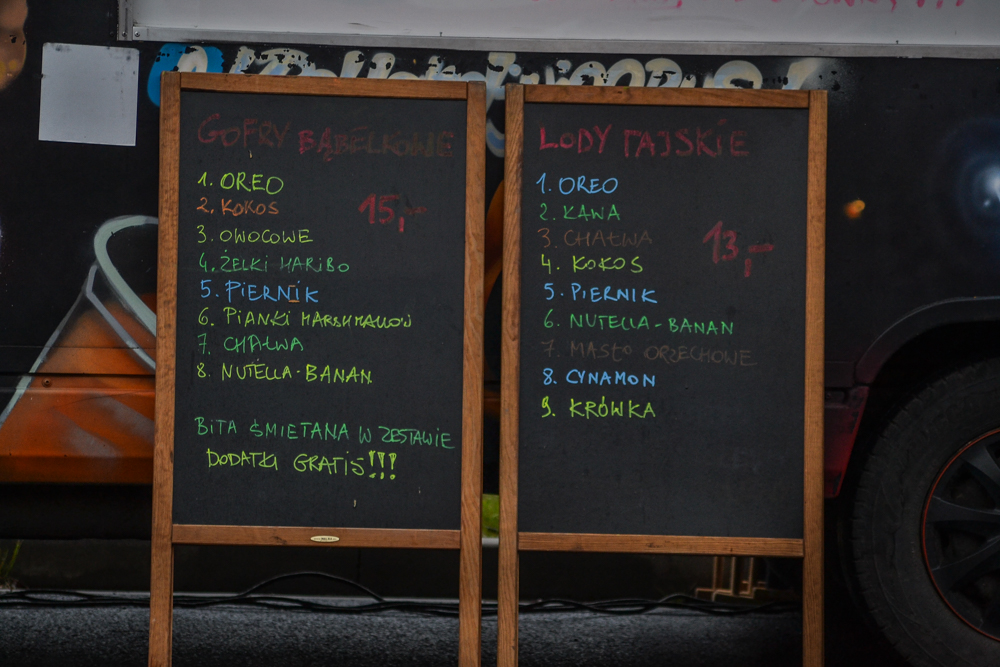 GOFRY BĄBELKOWE
1. OREO
2. KOKOS
15,-
3. OWOCOWE
4. ŻELKI HARIBO
5. PIERNIK
6. PIANKI MARSHMALLOW
7. CHAŁWA
8. NUTELLA-BANAN
BITA ŚMIETANA W ZESTAWIE
DODATKI GRATIS!!!
LODY TAJSKIE
1. OREO
2. KAWA
3. CHAŁWA
13,-
4. KOKOS
5. PIERNIK
6. NUTELLA-BANAN
7. MASŁO ORZECHOWE
8. CYNAMON
9. KRÓWKA